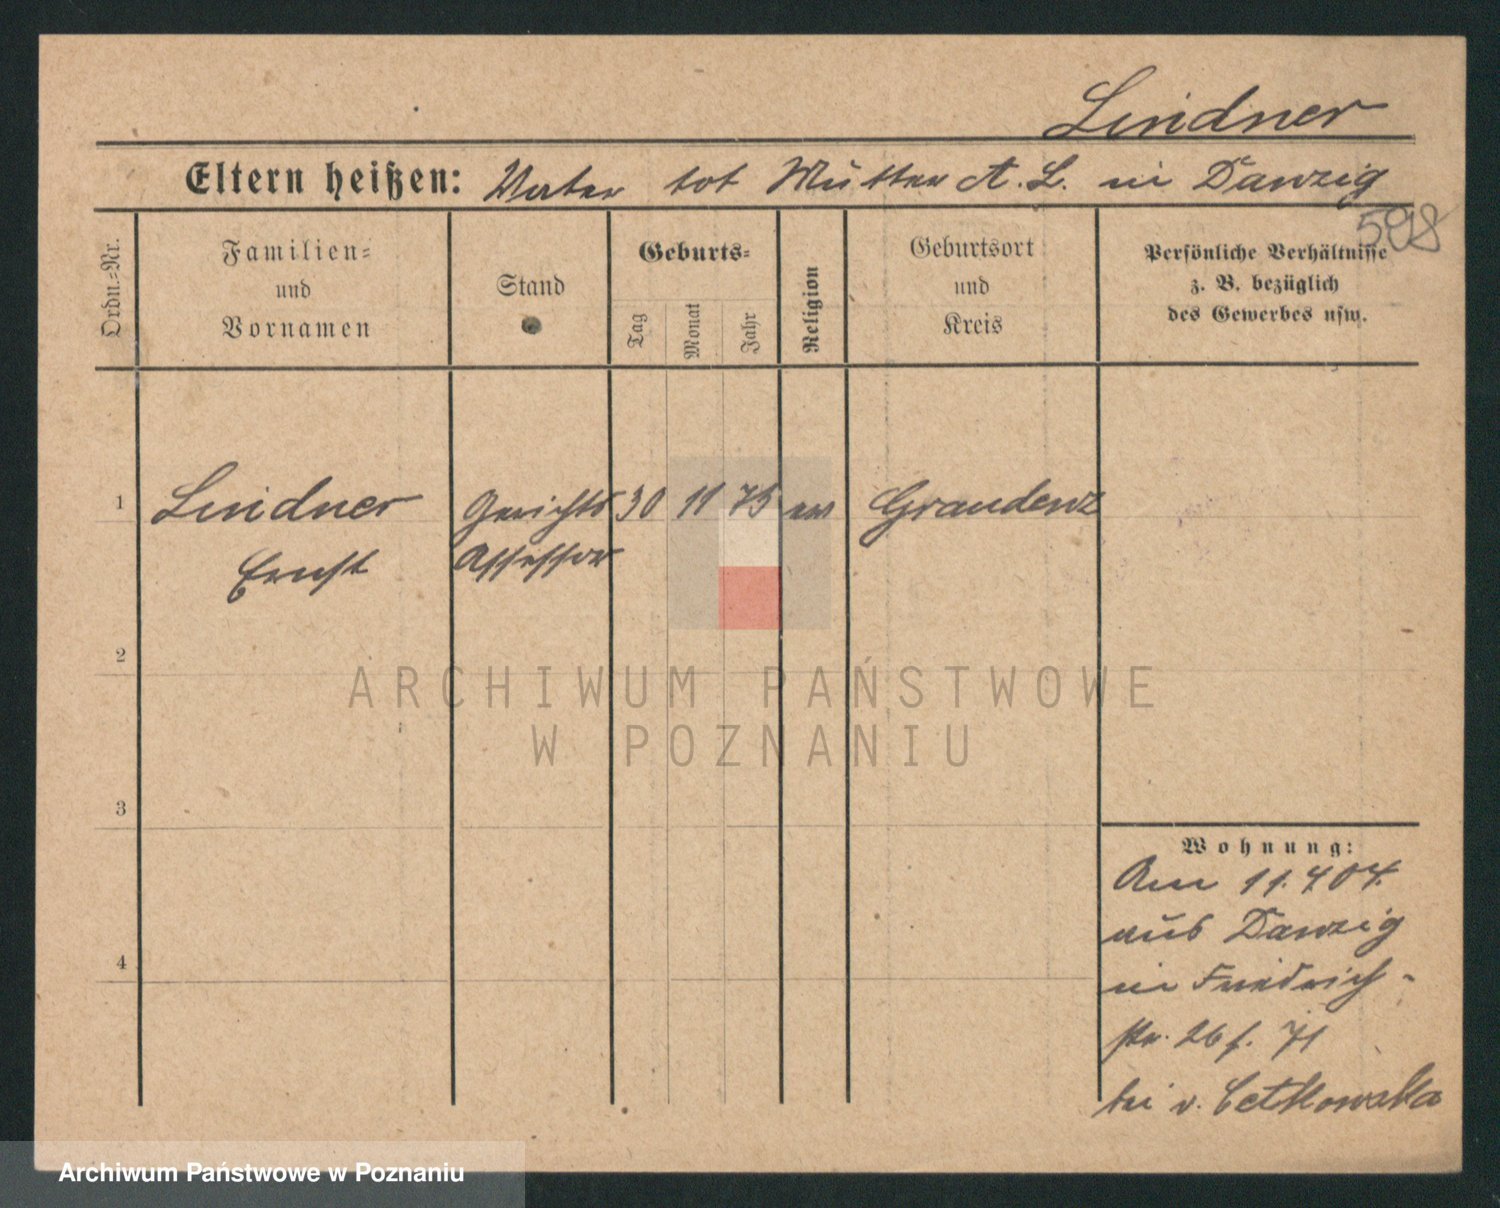 Lindner
Eltern heißen: Vater tot Mutter A. L. in Danzig
598
Ordn.-Nr.
Familien-
und
Vornamen
Stand
Geburts-
Tag
Monat
Jahr
Religion
Geburtsort
und
Kreis
Persönliche Verhältnisse
z. B. bezüglich
des Gewerbes usw.
1 Lindner Gerichts 30 11 75 ev Graudenz
Ernst Assessor
2
ARCHIWUM PAŃSTWOWE
W POZNANIU
3
Wohnung:
Am 11.4.04.
aus Danzig
4
in Friedrich-
str. 26
bei v.
Archiwum Państwowe w Poznaniu